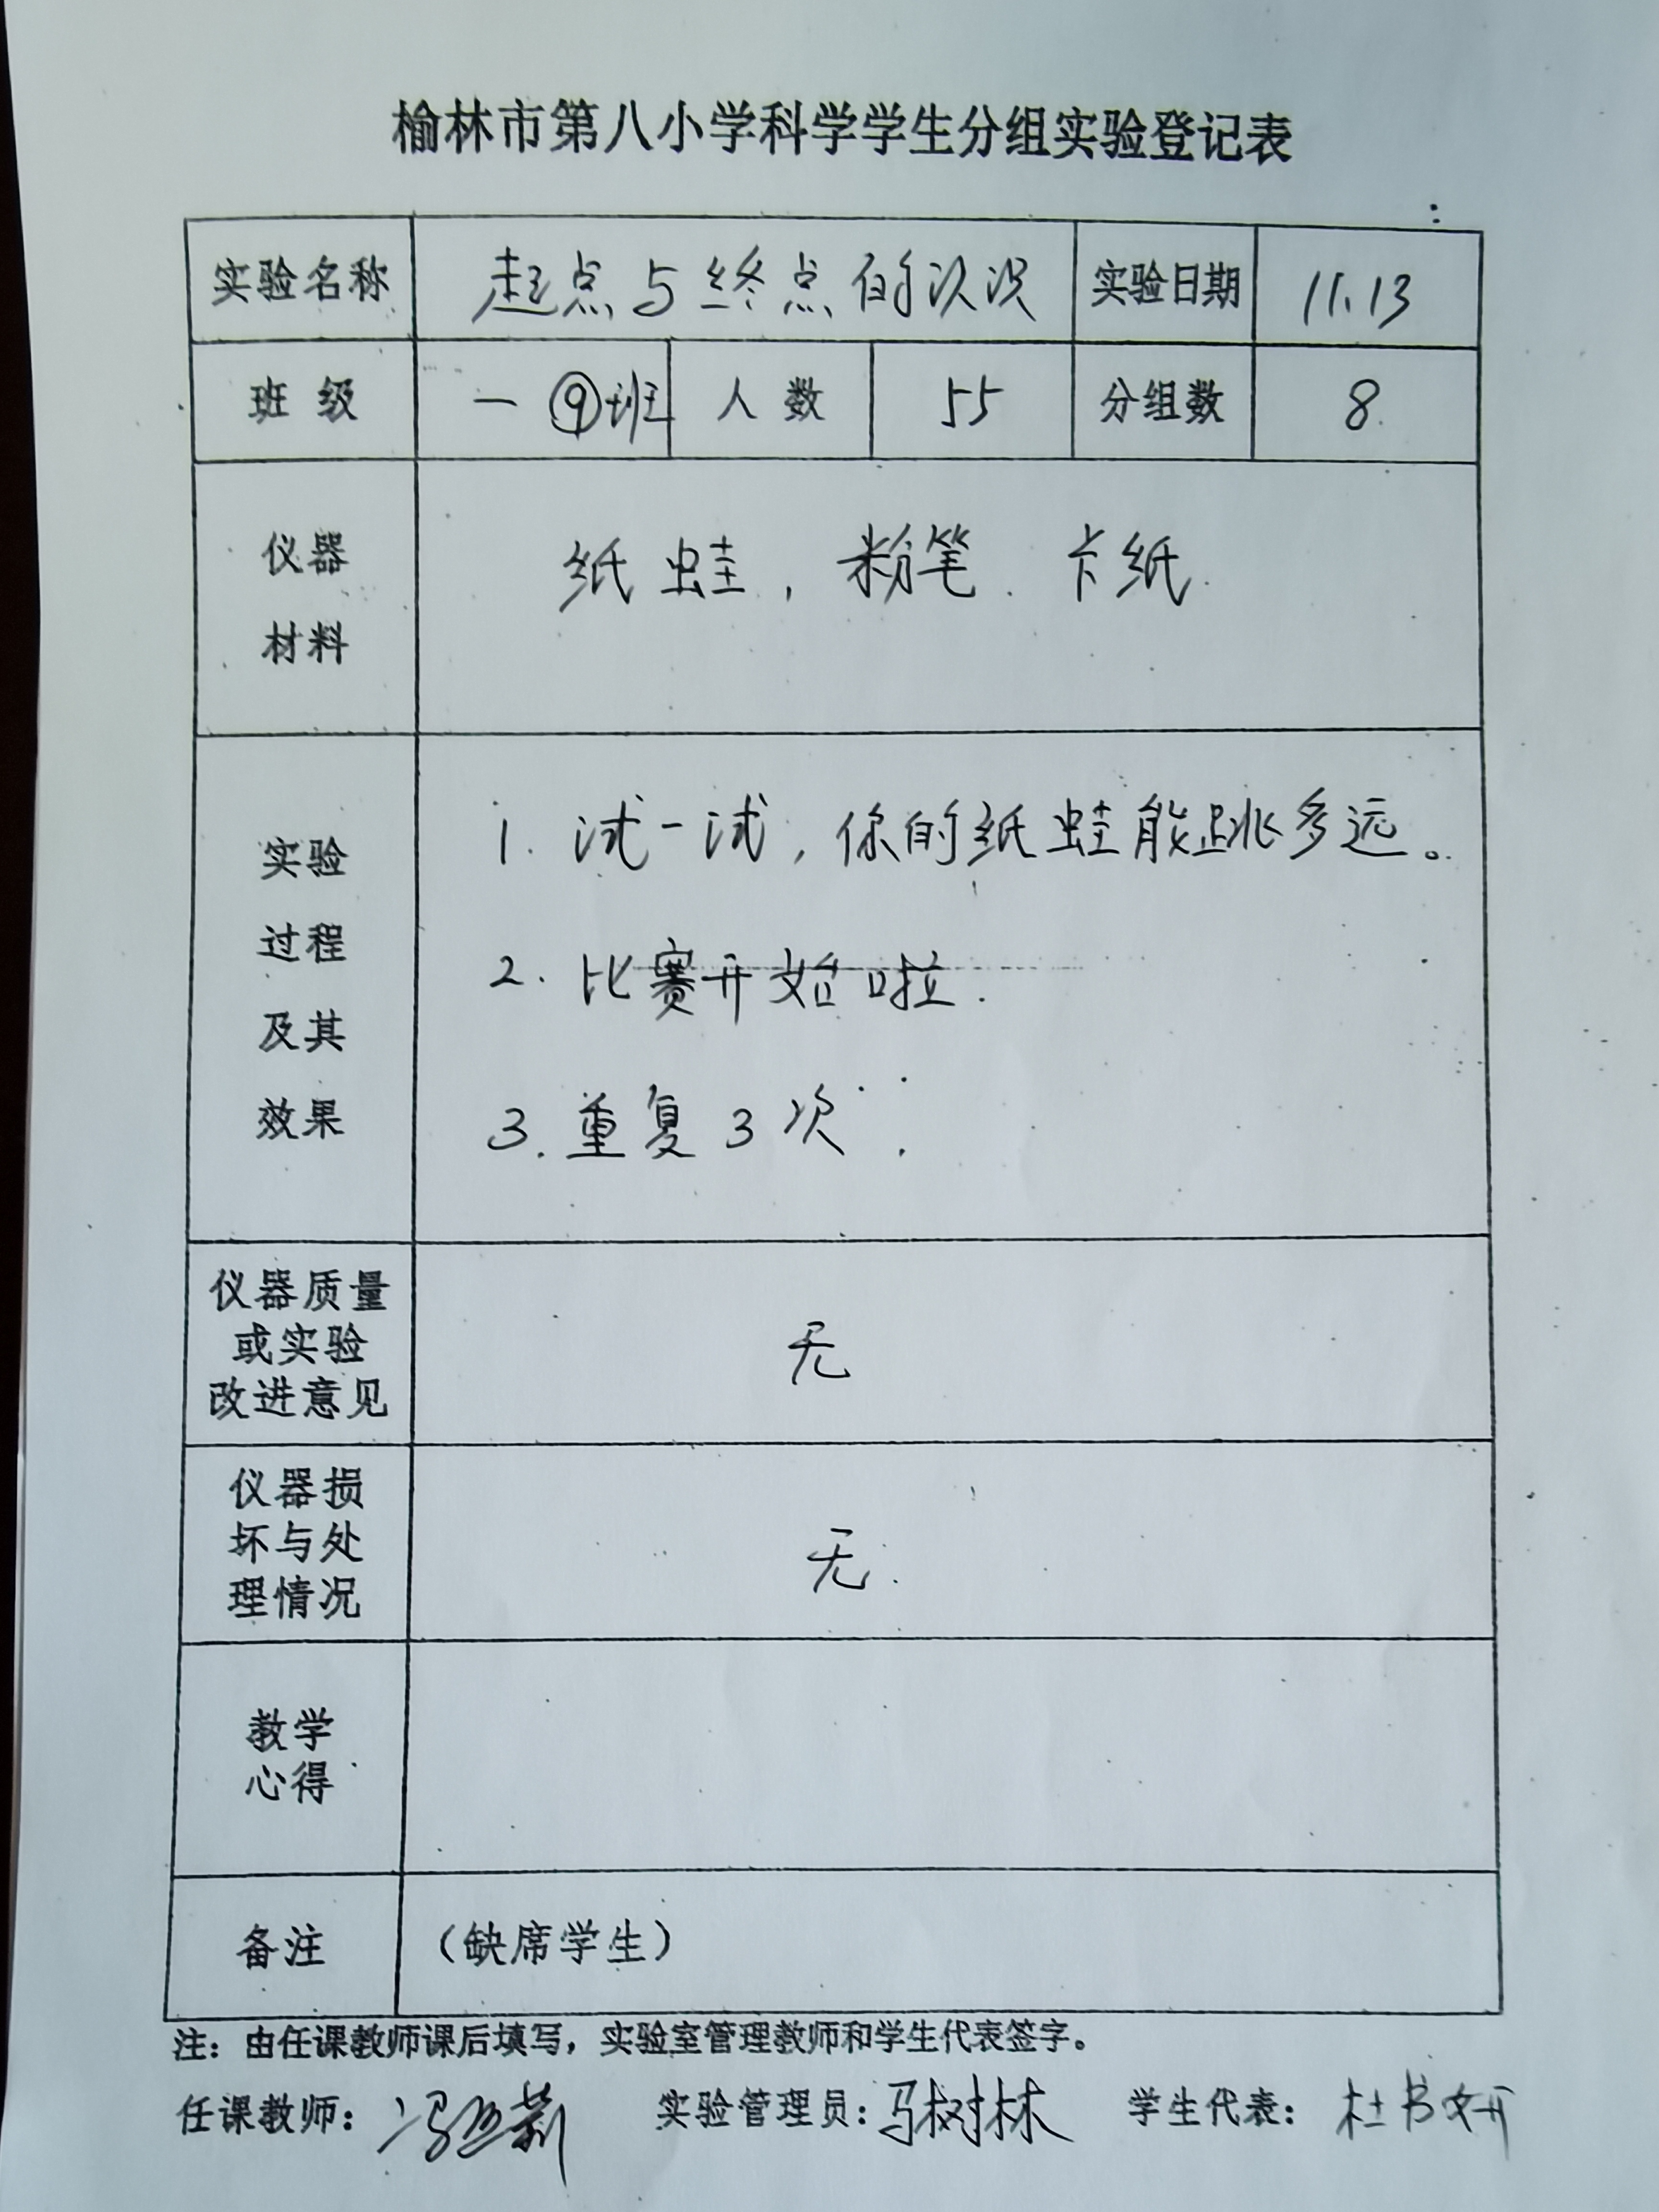 榆林市第八小学科学学生分组实验登记表
实验名称 起点与终点的 实验日期 11.13
班 级 一⑨班 人 数 55 分组数 8
仪器
材料
纸蛙，粉笔．卡纸．
实验
过程
及其
效果
1. 试一试，你的纸蛙能跳多远。
2. 比赛开始啦．
3. 重复3次．
仪器质量
或实验
改进意见
无
仪器损
坏与处
理情况
无．
教学
心得
备注 （缺席学生）
注：由任课教师课后填写，实验室管理教师和学生代表签字。
任课教师： 实验管理员：马树林 学生代表：杜书妍